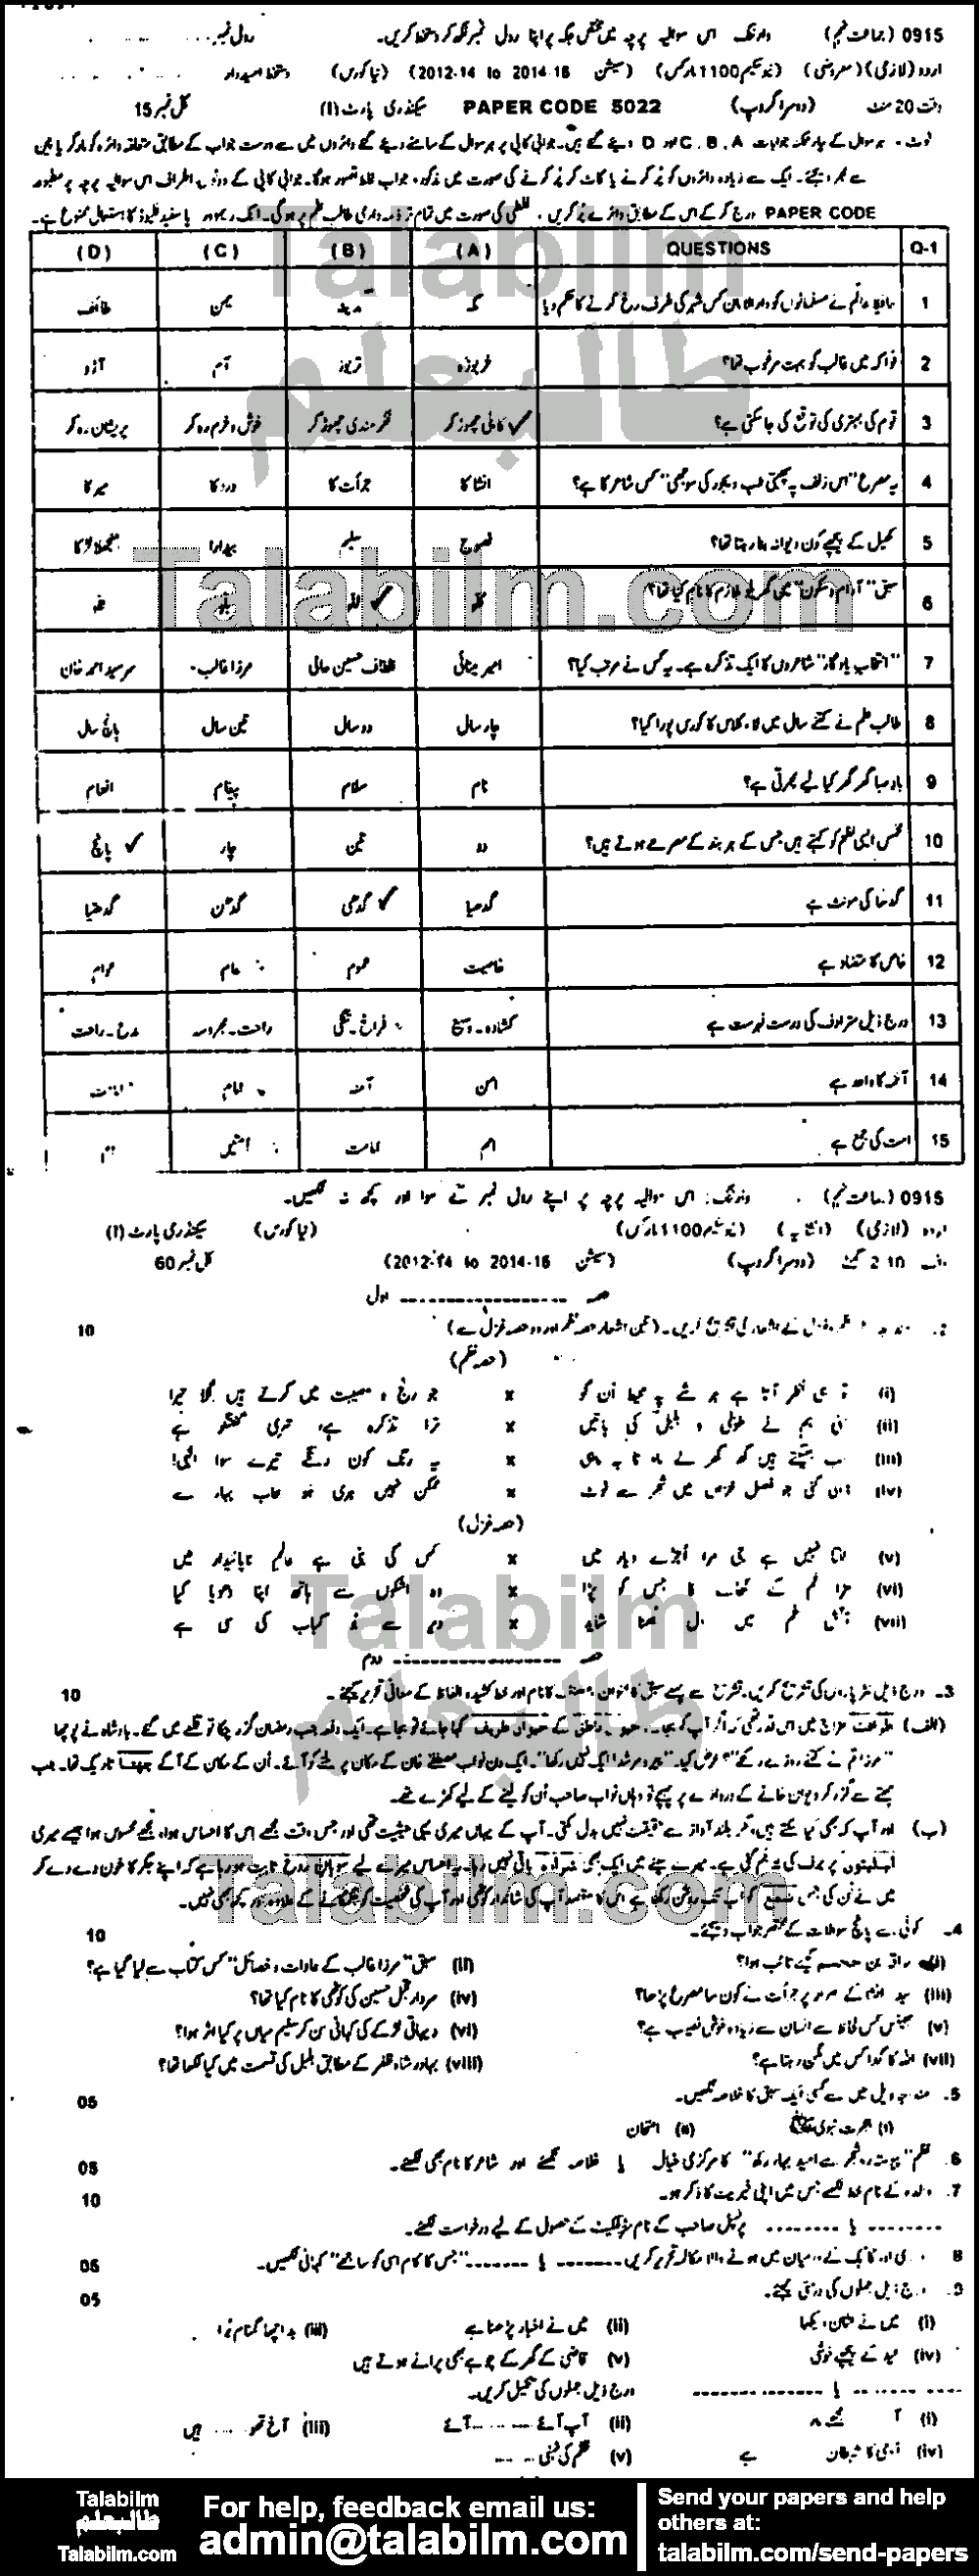 0915 (جماعت نہم) وارننگ: اس سوالیہ پرچہ میں مختص جگہ پر اپنا رول نمبر لکھ کر دستخط کریں۔ رول نمبر
اردو (لازمی) (معروضی) (نیو سکیم 1100 مارکس) (سیشن 2012-14 to 2014-16) (نیا کورس) دستخط امیدوار
وقت 20 منٹ (دوسرا گروپ) PAPER CODE 5022 سیکنڈری پارٹ (I) کل نمبر 15
نوٹ۔ ہر سوال کے چار ممکنہ جوابات C, B, A اور D دیئے گئے ہیں۔ جوابی کاپی پر ہر سوال کے سامنے دیئے گئے دائروں میں سے درست جواب کے مطابق متعلقہ دائرہ کو مارکر یا پین
سے بھر دیجئے۔ ایک سے زیادہ دائروں کو پُر کرنے یا کاٹ کر پُر کرنے کی صورت میں مذکورہ جواب غلط تصور ہوگا۔ جوابی کاپی کے دونوں اطراف اس سوالیہ پرچہ پر مطبوعہ
PAPER CODE درج کر کے اس کے مطابق دائرے پُر کریں، غلطی کی صورت میں تمام تر ذمہ داری طالب علم پر ہوگی۔ انک ریموور یا سفید فلیوڈ کا استعمال ممنوع ہے۔
Q-1 QUESTIONS (A) (B) (C) (D)
1 مسلمانوں کو دارالامان کس شہر کی طرف رخ کرنے کا حکم دیا مکہ مدینہ یمن طائف
2 فواکہ میں غالب کو بہت مرغوب تھا؟ خربوزہ تربوز آم آڑو
3 قوم کی بہتری کی توقع کی جا سکتی ہے؟ کاہلی چھوڑ کر فکر مندی چھوڑ کر خوش و خرم رہ کر پریشان رہ کر
4 یہ مصرع "اس زلف پہ پھبتی شب دیجور کی سوجھی" کس شاعر کا ہے؟ انشا کا جرأت کا درد کا میر کا
5 کھیل کے پیچھے کون دیوانہ بنا رہتا تھا؟ نصوح سلیم بیدارا منجھلا لڑکا
6 سبق "آرام و سکون" میں گھریلو ملازم کا نام کیا تھا؟ کلو للو
7 "انتخاب یادگار" شاعروں کا ایک تذکرہ ہے۔ یہ کس نے مرتب کیا؟ امیر مینائی الطاف حسین حالی مرزا غالب سرسید احمد خان
8 طالب علم نے کتنے سال میں لاء کلاس کا کورس پورا کیا؟ چار سال دو سال تین سال پانچ سال
9 باد صبا گھر گھر کیا لیے پھرتی ہے؟ نام سلام پیغام انعام
10 مخمس ایسی نظم کو کہتے ہیں جس کے ہر بند کے مصرعے ہوتے ہیں؟ دو تین چار پانچ
11 گدھا کی مونث ہے گدھیا گدھی گدھن گدھنیا
12 خاص کا متضاد ہے خاصیت عموم عام عوام
13 درج ذیل مترادف کی درست فہرست ہے کشادہ۔ وسیع فراخ۔ تنگی راحت۔ مدح۔ راحت
14 آئمہ کا واحد ہے امن امام
15 امت کی جمع ہے امم امامت امتیں
0915 (جماعت نہم) وارننگ: اس سوالیہ پرچہ پر اپنے رول نمبر کے سوا اور کچھ نہ لکھیں۔
اردو (لازمی) (انشائیہ) (نیو سکیم 1100 مارکس) (نیا کورس) سیکنڈری پارٹ (I)
2:10 گھنٹے (دوسرا گروپ) (سیشن 2012-14 to 2014-16) کل نمبر 60
حصہ اول
2. اشعار کی تشریح کریں۔ (تین اشعار حصہ نظم اور دو حصہ غزل سے) 10
(حصہ نظم)
(i) تو ہی نظر آتا ہے ہر شے پہ محیط ان کو x جو رنج و مصیبت میں کرتے ہیں گلہ تیرا
(ii) سنی ہم نے طوطی و بلبل کی باتیں x ترا تذکرہ ہے، تری گفتگو ہے
(iii) x یہ رنگ کون رنگے تیرے سوا الٰہی!
(iv) ڈالی گئی جو فصل خزاں میں شجر سے ٹوٹ x ممکن نہیں ہری ہو سحاب بہار سے
(حصہ غزل)
(v) لگتا نہیں ہے جی مرا اجڑے دیار میں x کس کی بنی ہے عالم ناپائیدار میں
(vi) x وہ اشکوں سے ہاتھ اپنا دھویا کیا
(vii) آتش غم میں دل بھنا شاید x دیر سے بو کباب کی سی ہے
حصہ دوم
3- درج ذیل نثر پاروں کی تشریح کریں، تشریح سے پہلے سبق کا عنوان، مصنف کا نام اور خط کشیدہ الفاظ کے معانی تحریر کیجئے۔ 10
(الف) ظرافت مزاج میں اس قدر تھی کہ اگر آپ کو بجائے حیوان ناطق کے حیوان ظریف کہا جائے تو بجا ہے۔ ایک دفعہ جب رمضان گزر چکا تو قلعے میں گئے۔ بادشاہ نے پوچھا
"مرزا تم نے کتنے روزے رکھے؟" عرض کیا۔ "پیر و مرشد! ایک نہیں رکھا"۔ ایک دن نواب مصطفیٰ خان کے مکان پر ملنے کو آئے۔ اُن کے مکان کے آگے چھتہ تاریک تھا۔ جب
چھتے سے گزر کر دیوان خانے کے دروازے پر پہنچے تو وہاں نواب صاحب اُن کو لینے کے لیے کھڑے تھے۔
(ب) اور آپ کر بھی کیا سکتے ہیں، مگر بلند آواز سے حقیقت نہیں بدل سکتی۔ آپ کے یہاں میری یہی حیثیت تھی اور جس وقت مجھے اس کا احساس ہوا، مجھے محسوس ہوا جیسے میری
پر برف کی تہ جم گئی ہے۔ میرے سینے میں ایک بھی شرارہ باقی نہیں رہا۔ یہ احساس میرے لیے سوہان روح ثابت ہو رہا ہے کہ اپنے جگر کا خون دے دے کر
میں نے فن کی جس شمع کو اب تک روشن رکھا ہے اس کا مقصد آپ کی شاندار کوٹھی اور آپ کی شخصیت کو چمکانے کے علاوہ اور کچھ بھی نہیں۔
4- کوئی سے پانچ سوالات کے مختصر جواب دیجئے۔ 10
(i) سراقہ بن جعشم کیسے تائب ہوا؟ (ii) سبق "مرزا غالب کے عادات و خصائل" کس کتاب سے لیا گیا ہے؟
(iii) سید انشا کے مصرع پر جرأت نے کون سا مصرع پڑھا؟ (iv) سردار تجمل حسین کی کوٹھی کا نام کیا تھا؟
(v) بھینس کس لحاظ سے انسان سے زیادہ خوش نصیب ہے؟ (vi) دیہاتی لڑکے کی کہانی سن کر سلیم میاں پر کیا اثر ہوا؟
(vii) اللہ کا گدا کس میں مگن رہتا ہے؟ (viii) بہادر شاہ ظفر کے مطابق بلبل کی قسمت میں کیا لکھا تھا؟
5. مندرجہ ذیل میں سے کسی ایک سبق کا خلاصہ لکھیں۔ 05
(i) ہجرت نبوی ﷺ (ii) امتحان
6. نظم "پیوستہ رہ شجر سے امید بہار رکھ" کا مرکزی خیال یا خلاصہ لکھیے اور شاعر کا نام بھی لکھئے۔ 05
7. والدہ کے نام خط لکھیے جس میں اپنی خیریت کا ذکر ہو۔ 10
یا پرنسپل صاحب کے نام سرٹیفکیٹ کے حصول کے لیے درخواست لکھئے۔
8 اور گاہک کے درمیان میں ہونے والا مکالمہ تحریر کریں یا "جس کا کام اسی کو ساجھے" کہانی لکھیں۔ 05
9. درج ذیل جملوں کی درستی کیجئے۔ 05
(i) میں نے دیکھا (ii) میں نے اخبار پڑھنا ہے (iii) بد اچھا گمنام برا
(iv) عید کے پیچھے خوشی (v) قاضی کے گھر کے چوہے بھی پرانے ہوتے ہیں
یا درج ذیل جملوں کی تکمیل کریں۔
(i) آ (ii) آپ آئے آئے (iii) آخ تھو ہیں
(iv) آدمی کا شیطان ہے (v) علم کی
Talabilm
طالبعلم
Talabilm.com
Talabilm
طالبعلم
Talabilm.com
Talabilm
طالبعلم
Talabilm.com
For help, feedback email us:
admin@talabilm.com
Send your papers and help
others at:
talabilm.com/send-papers